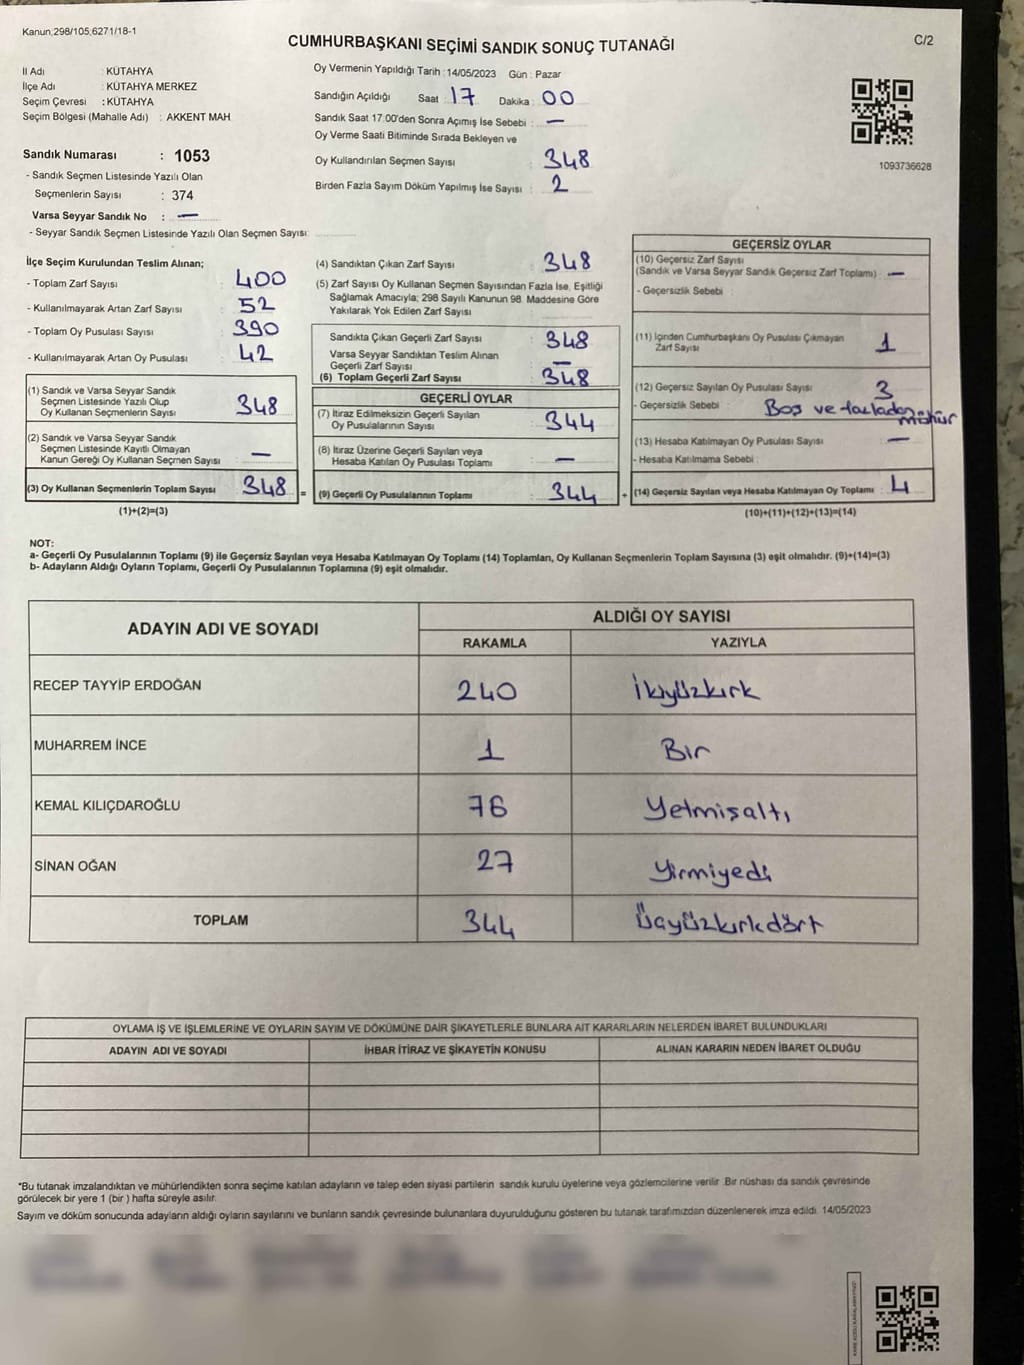 Kanun,298/105,6271/18-1
C/2
CUMHURBAŞKANI SEÇİMİ SANDIK SONUÇ TUTANAĞI
İl Adı : KÜTAHYA
İlçe Adı : KÜTAHYA MERKEZ
Seçim Çevresi : KÜTAHYA
Seçim Bölgesi (Mahalle Adı) : AKKENT MAH
Sandık Numarası : 1053
- Sandık Seçmen Listesinde Yazılı Olan
Seçmenlerin Sayısı : 374
Varsa Seyyar Sandık No : —
- Seyyar Sandık Seçmen Listesinde Yazılı Olan Seçmen Sayısı:
Oy Vermenin Yapıldığı Tarih : 14/05/2023 Gün : Pazar
Sandığın Açıldığı Saat : 17 Dakika : 00
Sandık Saat 17.00'den Sonra Açımış İse Sebebi : —
Oy Verme Saati Bitiminde Sırada Bekleyen ve
Oy Kullandırılan Seçmen Sayısı : 348
Birden Fazla Sayım Döküm Yapılmış İse Sayısı : 2
1093736628
İlçe Seçim Kurulundan Teslim Alınan;
- Toplam Zarf Sayısı : 400
- Kullanılmayarak Artan Zarf Sayısı : 52
- Toplam Oy Pusulası Sayısı : 390
- Kullanılmayarak Artan Oy Pusulası : 42
(1) Sandık ve Varsa Seyyar Sandık
Seçmen Listesinde Yazılı Olup
Oy Kullanan Seçmenlerin Sayısı : 348
(2) Sandık ve Varsa Seyyar Sandık
Seçmen Listesinde Kayıtlı Olmayan
Kanun Gereği Oy Kullanan Seçmen Sayısı : —
(3) Oy Kullanan Seçmenlerin Toplam Sayısı : 348
(1)+(2)=(3)
=
(4) Sandıktan Çıkan Zarf Sayısı : 348
(5) Zarf Sayısı Oy Kullanan Seçmen Sayısından Fazla İse, Eşitliği
Sağlamak Amacıyla; 298 Sayılı Kanunun 98. Maddesine Göre
Yakılarak Yok Edilen Zarf Sayısı :
Sandıkta Çıkan Geçerli Zarf Sayısı : 348
Varsa Seyyar Sandıktan Teslim Alınan
Geçerli Zarf Sayısı : —
(6) Toplam Geçerli Zarf Sayısı : 348
GEÇERLİ OYLAR
(7) İtiraz Edilmeksizin Geçerli Sayılan
Oy Pusulalarının Sayısı : 344
(8) İtiraz Üzerine Geçerli Sayılan veya
Hesaba Katılan Oy Pusulası Toplamı : —
(9) Geçerli Oy Pusulalarının Toplamı : 344
+
GEÇERSİZ OYLAR
(10) Geçersiz Zarf Sayısı
(Sandık ve Varsa Seyyar Sandık Geçersiz Zarf Toplamı) : —
- Geçersizlik Sebebi :
(11) İçinden Cumhurbaşkanı Oy Pusulası Çıkmayan
Zarf Sayısı : 1
(12) Geçersiz Sayılan Oy Pusulası Sayısı : 3
- Geçersizlik Sebebi : Boş ve fazladan
mühür
(13) Hesaba Katılmayan Oy Pusulası Sayısı : —
- Hesaba Katılmama Sebebi :
(14) Geçersiz Sayılan veya Hesaba Katılmayan Oy Toplamı : 4
(10)+(11)+(12)+(13)=(14)
NOT:
a- Geçerli Oy Pusulalarının Toplamı (9) ile Geçersiz Sayılan veya Hesaba Katılmayan Oy Toplamı (14) Toplamları, Oy Kullanan Seçmenlerin Toplam Sayısına (3) eşit olmalıdır. (9)+(14)=(3)
b- Adayların Aldığı Oyların Toplamı, Geçerli Oy Pusulalarının Toplamına (9) eşit olmalıdır.
ADAYIN ADI VE SOYADI
ALDIĞI OY SAYISI
RAKAMLA YAZIYLA
RECEP TAYYİP ERDOĞAN 240 İkiyüzkırk
MUHARREM İNCE 1 Bir
KEMAL KILIÇDAROĞLU 76 Yetmişaltı
SİNAN OĞAN 27 Yirmiyedi
TOPLAM 344 Üçyüzkırkdört
OYLAMA İŞ VE İŞLEMLERİNE VE OYLARIN SAYIM VE DÖKÜMÜNE DAİR ŞİKAYETLERLE BUNLARA AİT KARARLARIN NELERDEN İBARET BULUNDUKLARI
ADAYIN ADI VE SOYADI İHBAR İTİRAZ VE ŞİKAYETİN KONUSU ALINAN KARARIN NEDEN İBARET OLDUĞU
*Bu tutanak imzalandıktan ve mühürlendikten sonra seçime katılan adayların ve talep eden siyasi partilerin sandık kurulu üyelerine veya gözlemcilerine verilir .Bir nüshası da sandık çevresinde
görülecek bir yere 1 (bir ) hafta süreyle asılır.
Sayım ve döküm sonucunda adayların aldığı oyların sayılarını ve bunların sandık çevresinde bulunanlara duyurulduğunu gösteren bu tutanak tarafımızdan düzenlenerek imza edildi. 14/05/2023